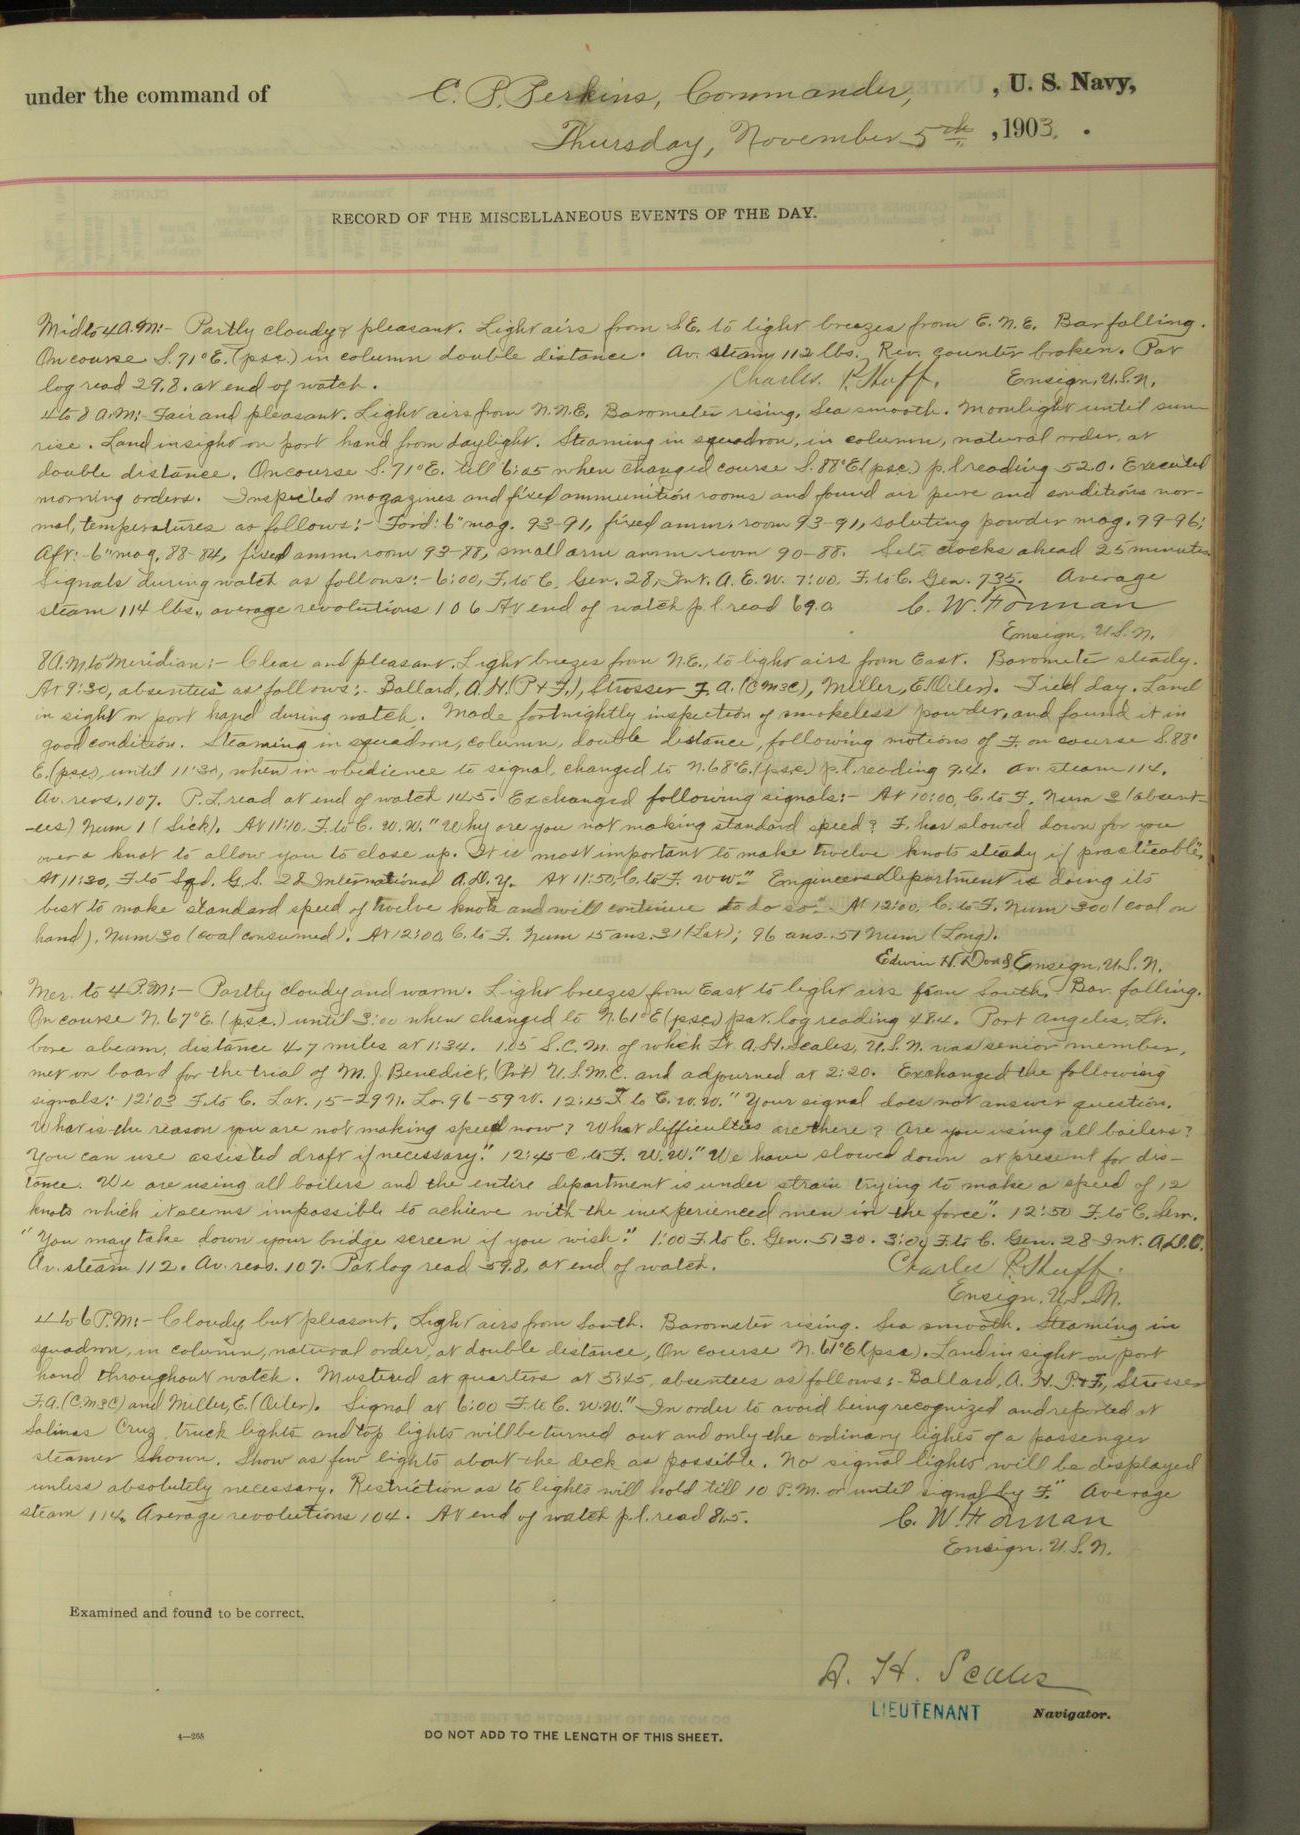 under the command of C. P. Perkins, Commander, , U. S. Navy,
Thursday, November 5th , 1903 .
RECORD OF THE MISCELLANEOUS EVENTS OF THE DAY.
Mid to 4 A.M:- Partly cloudy & pleasant. Light airs from S.E. to light breezes from E.N.E. Bar falling.
On course S. 71° E. (psc.) in column double distance. Av. steam 112 lbs. Rev. counter broken. Pat
log read 29.8. at end of watch. Charles P. Huff, Ensign, U.S.N.
4 to 8 A.M:- Fair and pleasant. Light airs from N.N.E. Barometer rising. Sea smooth. Moonlight until sun-
rise. Land in sight on port hand from daylight. Steaming in squadron, in column, natural order, at
double distance. On course S. 71° E. till 6:25 when changed course S. 88° E (psc) p.l. reading 52.0. Executed
morning orders. Inspected magazines and fixed ammunition rooms and found air pure and conditions nor-
mal, temperatures as follows:- Ford: 6" mag. 93-91, fixed amm. room 93-91, saluting powder mag. 99-96;
Aft: 6" mag. 88-84, fixed amm. room 93-88, small arm amm room 90-88. Set clocks ahead 25 minutes.
Signals during watch as follows:- 6:00, F. to C. Gen. 28, Int. A. E. W. 7:00, F. to C. Gen. 735. Average
steam 114 lbs., average revolutions 106 At end of watch p.l. read 69.0 C. W. Forman
Ensign, U.S.N.
8 A.M. to Meridian:- Clear and pleasant. Light breezes from N.E., to light airs from East. Barometer steady.
At 9:30, absentees as follows:- Ballard, A. H. (P & F.), Strosser F. A. (CM3C), Miller, E. (Oiler). Field day. Land
in sight on port hand during watch. Made fortnightly inspection of smokeless powder, and found it in
good condition. Steaming in squadron, column, double distance, following motions of F. on course S. 88°
E. (psc), until 11:30, when in obedience to signal, changed to N. 68° E. (psc) p.l. reading 9.4. Av. steam 114.
Av. revs. 107. P.L. read at end of watch 14.5. Exchanged following signals:- At 10:00, C. to F. Num 3 (absent-
-ees) Num 1 (Sick). At 11:10. F. to C. W.W. "Why are you not making standard speed? F. has slowed down for you
over a knot to allow you to close up. It is most important to make twelve knots steady if practicable".
At 11:30, F. to Sqd. G.S. 28 International A.D.Y. At 11:50, C. to F. WW." Engineers Department is doing its
best to make standard speed of twelve knots and will continue to do so." At 12:00, C. to F. Num 300 (coal on
hand). Num 30 (coal consumed). At 12:00, C. to F. Num 15 ans. 31 (Lat); 96 ans. 51 Num (Long).
Edwin H. Dodd Ensign, U.S.N.
Mer. to 4 P.M:- Partly cloudy and warm. Light breezes from East to light airs from South. Bar. falling.
On course N. 67° E. (psc.) until 3:00 when changed to N. 61° E (psc) pat. log reading 48.4. Port Angeles, Lt.
bore abeam, distance 4.7 miles at 1:34. 1.05 S.C.M. of which Lt. A. H. Scales, U.S.N. was senior member,
met on board for the trial of M. J. Benedict, (Pvt) U.S.M.C. and adjourned at 2:20. Exchanged the following
signals:- 12:03 F. to C. Lat. 15-29 N. Lo. 96-59 W. 12:15 F. to C. W.W. "Your signal does not answer question.
What is the reason you are not making speed now? What difficulties are there? Are you using all boilers?
You can use assisted draft if necessary." 12:45 C. to F. W.W. "We have slowed down at present for dis-
tance. We are using all boilers and the entire department is under strain trying to make a speed of 12
knots which it seems impossible to achieve with the inexperienced men in the force". 12:50 F. to C. Sem.
"You may take down your bridge screen if you wish." 1:00 F. to C. Gen. 5130. 3:00 F. to C. Gen. 28 Int. A.D.O.
Av. steam 112. Av. revs. 107. Pat. log read 59.8, at end of watch. Charles P. Huff.
Ensign, U.S.N.
4 to 6 P.M:- Cloudy but pleasant. Light airs from South. Barometer rising. Sea smooth. Steaming in
squadron, in column, natural order, at double distance, On course N. 61° E (psc). Land in sight on port
hand throughout watch. Mustered at quarters at 5:45, absentees as follows:- Ballard, A. H. P & F., Strosser
F. A. (CM3C) and Miller, E. (Oiler). Signal at 6:00 F. to C. W.W. "In order to avoid being recognized and reported at
Salinas Cruz, truck lights and top lights will be turned out and only the ordinary lights of a passenger
steamer shown. Show as few lights about the deck as possible. No signal lights will be displayed
unless absolutely necessary. Restriction as to lights will hold till 10 P.M. or until signal by F." Average
steam 114, Average revolutions 104. At end of watch p.l. read 81.5. C. W. Forman
Ensign, U.S.N.
Examined and found to be correct.
A. H. Scales
LIEUTENANT Navigator.
4—268
DO NOT ADD TO THE LENGTH OF THIS SHEET.